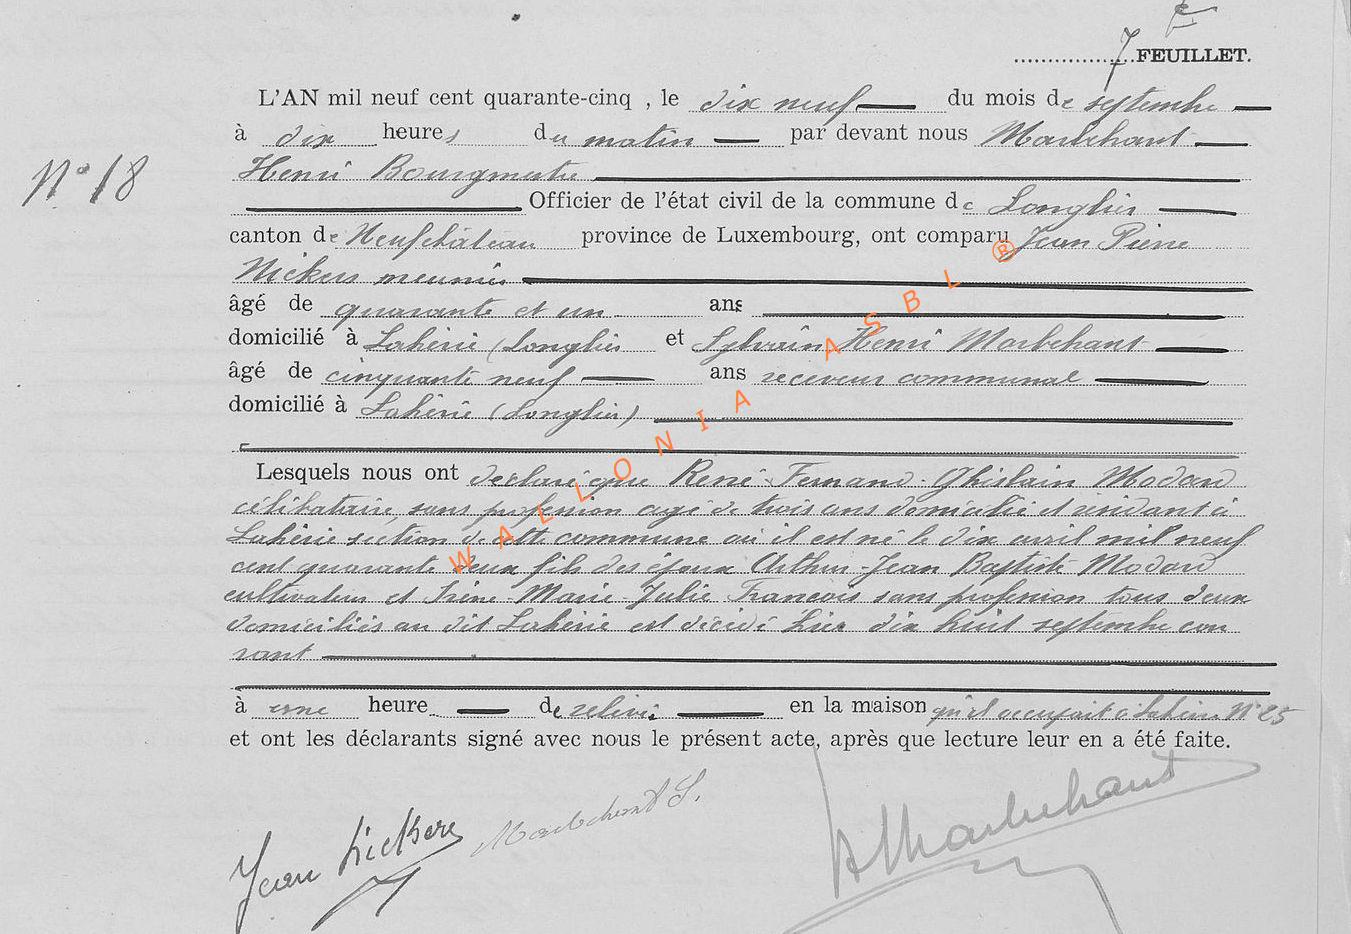 7e FEUILLET.
L'AN mil neuf cent quarante-cinq , le dix neuf du mois de septembre
à dix heures du matin par devant nous Marbehant
N° 18
Henri Bourgmestre
Officier de l'état civil de la commune de Longlier
canton de Neufchâteau province de Luxembourg, ont comparu Jean Pierre
Nickers meunier
âgé de quarante et un ans
domicilié à Lahérie (Longlier et Sylvain Henri Marbehant
âgé de cinquante neuf ans receveur communal
domicilié à Lahérie (Longlier)
Lesquels nous ont déclaré que René-Fernand-Ghislain Modard
célibataire, sans profession agé de trois ans domicilié et résidant à
Lahérie section de cette commune où il est né le dix avril mil neuf
cent quarante deux fils des époux Arthur-Jean Baptiste Modard
cultivateur et Irène-Marie-Julie François sans profession tous deux
domiciliés au dit Lahérie est décédé hier dix huit septembre cou
rant
à une heure de relevée en la maison qu'il occupait à Lahérie N° 25
et ont les déclarants signé avec nous le présent acte, après que lecture leur en a été faite.
Jean Nickers Marbehant S. H Marbehant
WALLONIA ASBL ®